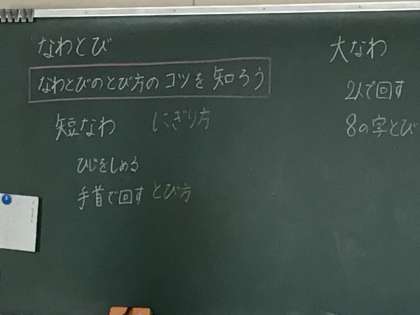 なわとび
なわとびのとび方のコツを知ろう
短なわ にぎり方
ひじをしめる
手首で回す とび方
大なわ
2人で回す
8の字とび